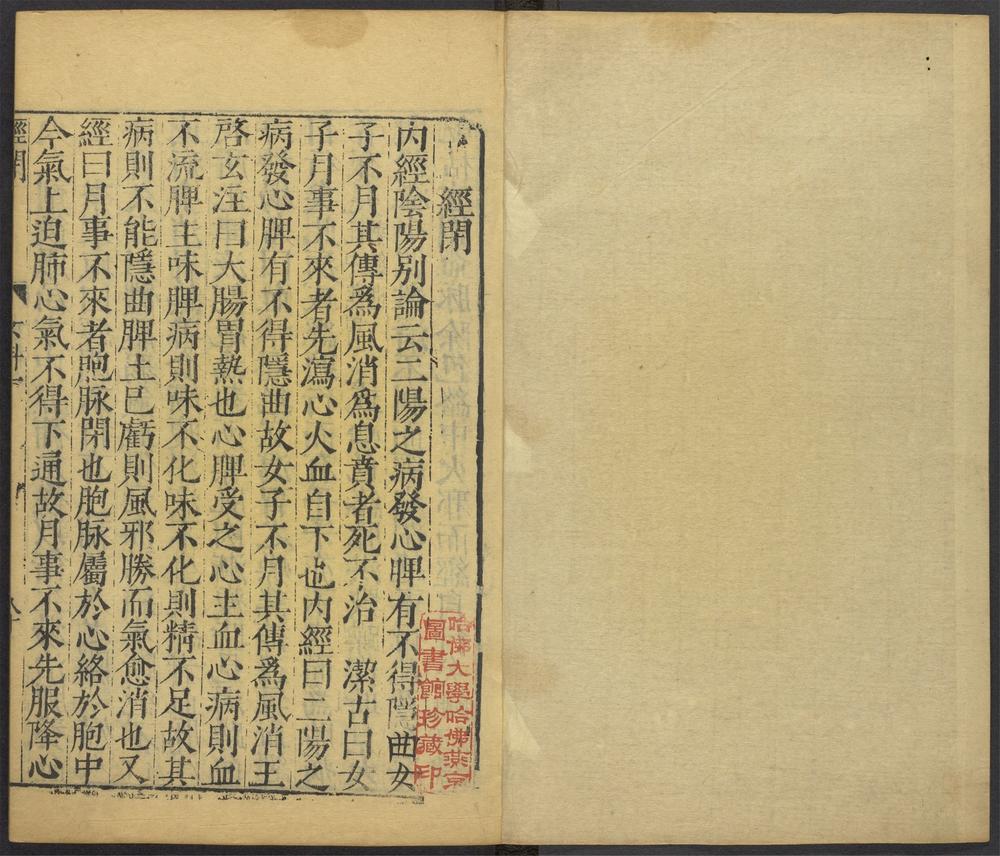 經閉
內經陰陽別論云二陽之病發心脾有不得隱曲女
子不月其傳爲風消爲息賁者死不治　潔古曰女
子月事不來者先瀉心火血自下也內經曰二陽之
病發心脾有不得隱曲故女子不月其傳爲風消王
啓玄注曰大腸胃熱也心脾受之心主血心病則血
不流脾主味脾病則味不化味不化則精不足故其
病則不能隱曲脾土已虧則風邪勝而氣愈消也又
經曰月事不來者胞脉閉也胞脉屬於心絡於胞中
今氣上迫肺心氣不得下通故月事不來先服降心
經閉
女科
哈佛大學哈佛燕京
圖書館珍藏印